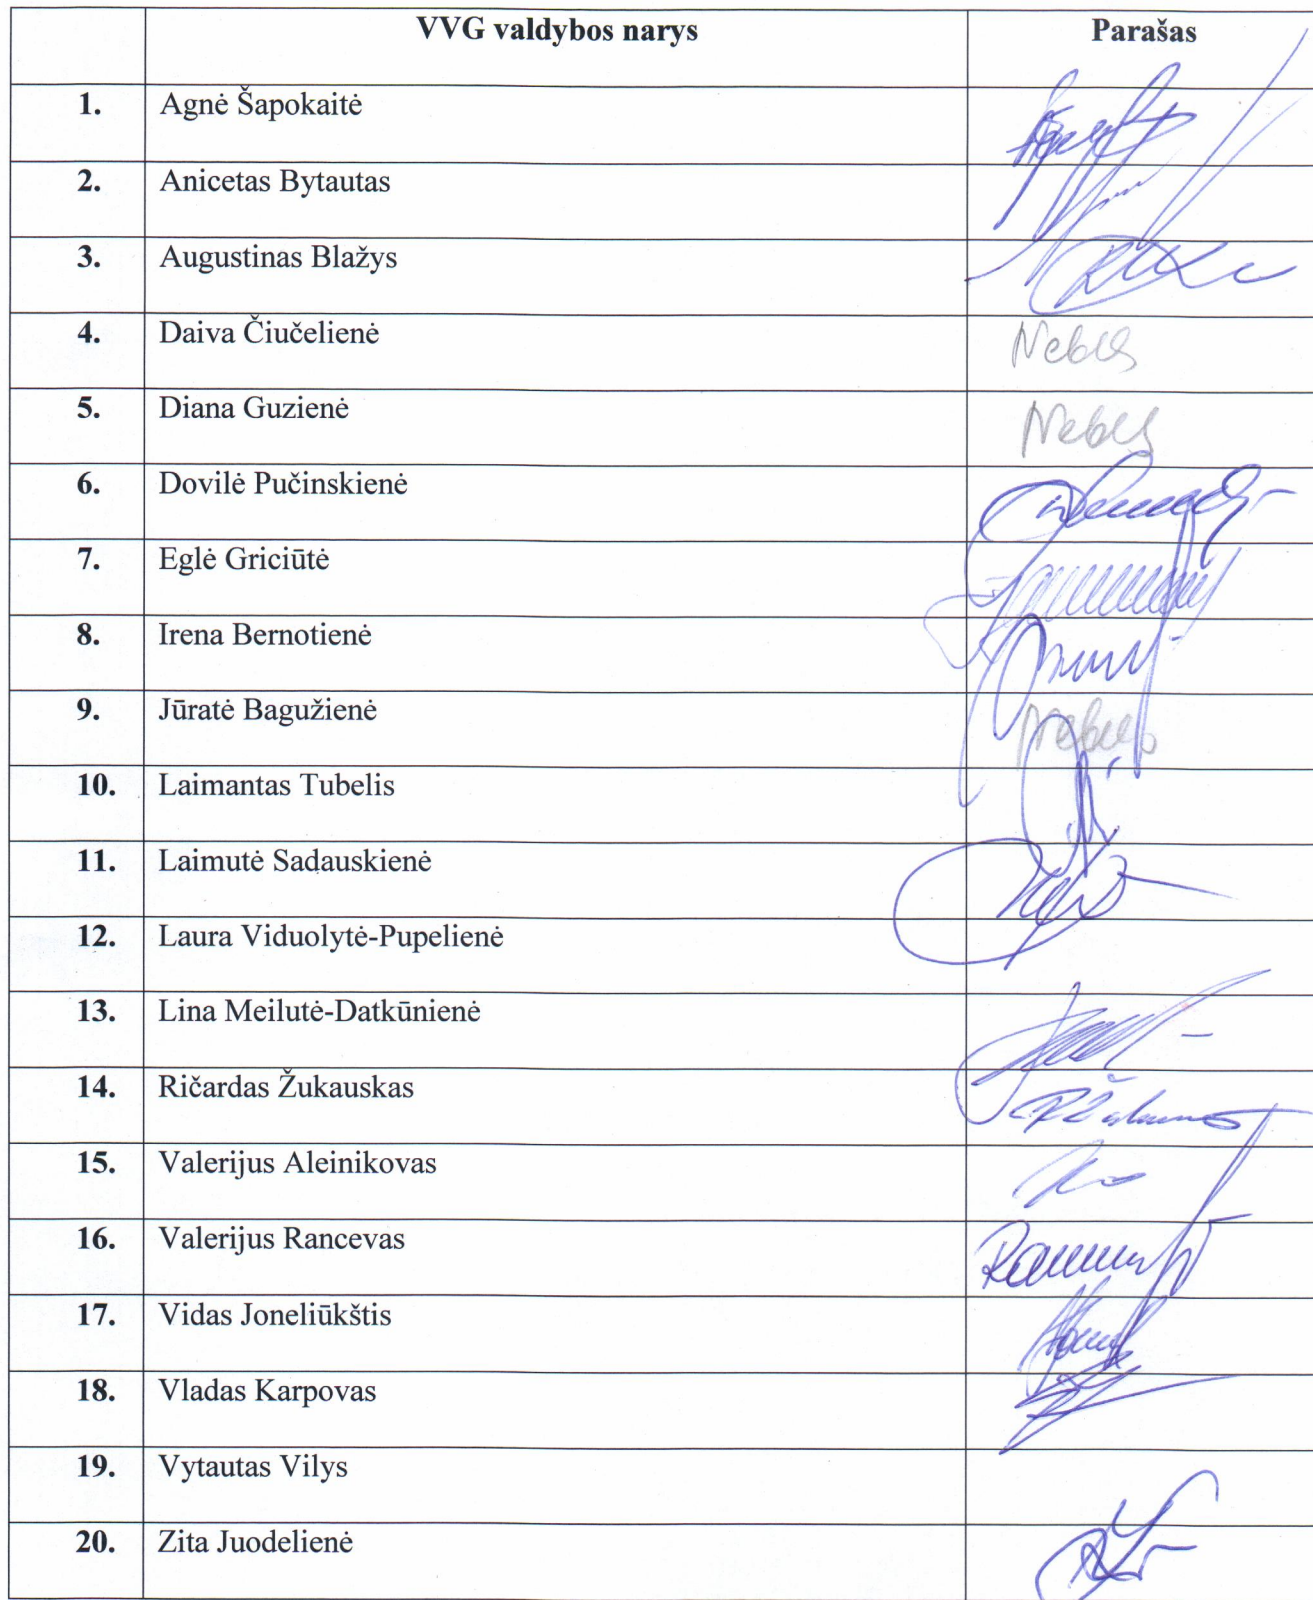 VVG valdybos narys Parašas
1. Agnė Šapokaitė
2. Anicetas Bytautas
3. Augustinas Blažys
4. Daiva Čiučelienė Nebus
5. Diana Guzienė Nebus
6. Dovilė Pučinskienė
7. Eglė Griciūtė
8. Irena Bernotienė
9. Jūratė Bagužienė Nebus
10. Laimantas Tubelis
11. Laimutė Sadauskienė
12. Laura Viduolytė-Pupelienė
13. Lina Meilutė-Datkūnienė
14. Ričardas Žukauskas
15. Valerijus Aleinikovas
16. Valerijus Rancevas
17. Vidas Joneliūkštis
18. Vladas Karpovas
19. Vytautas Vilys
20. Zita Juodelienė